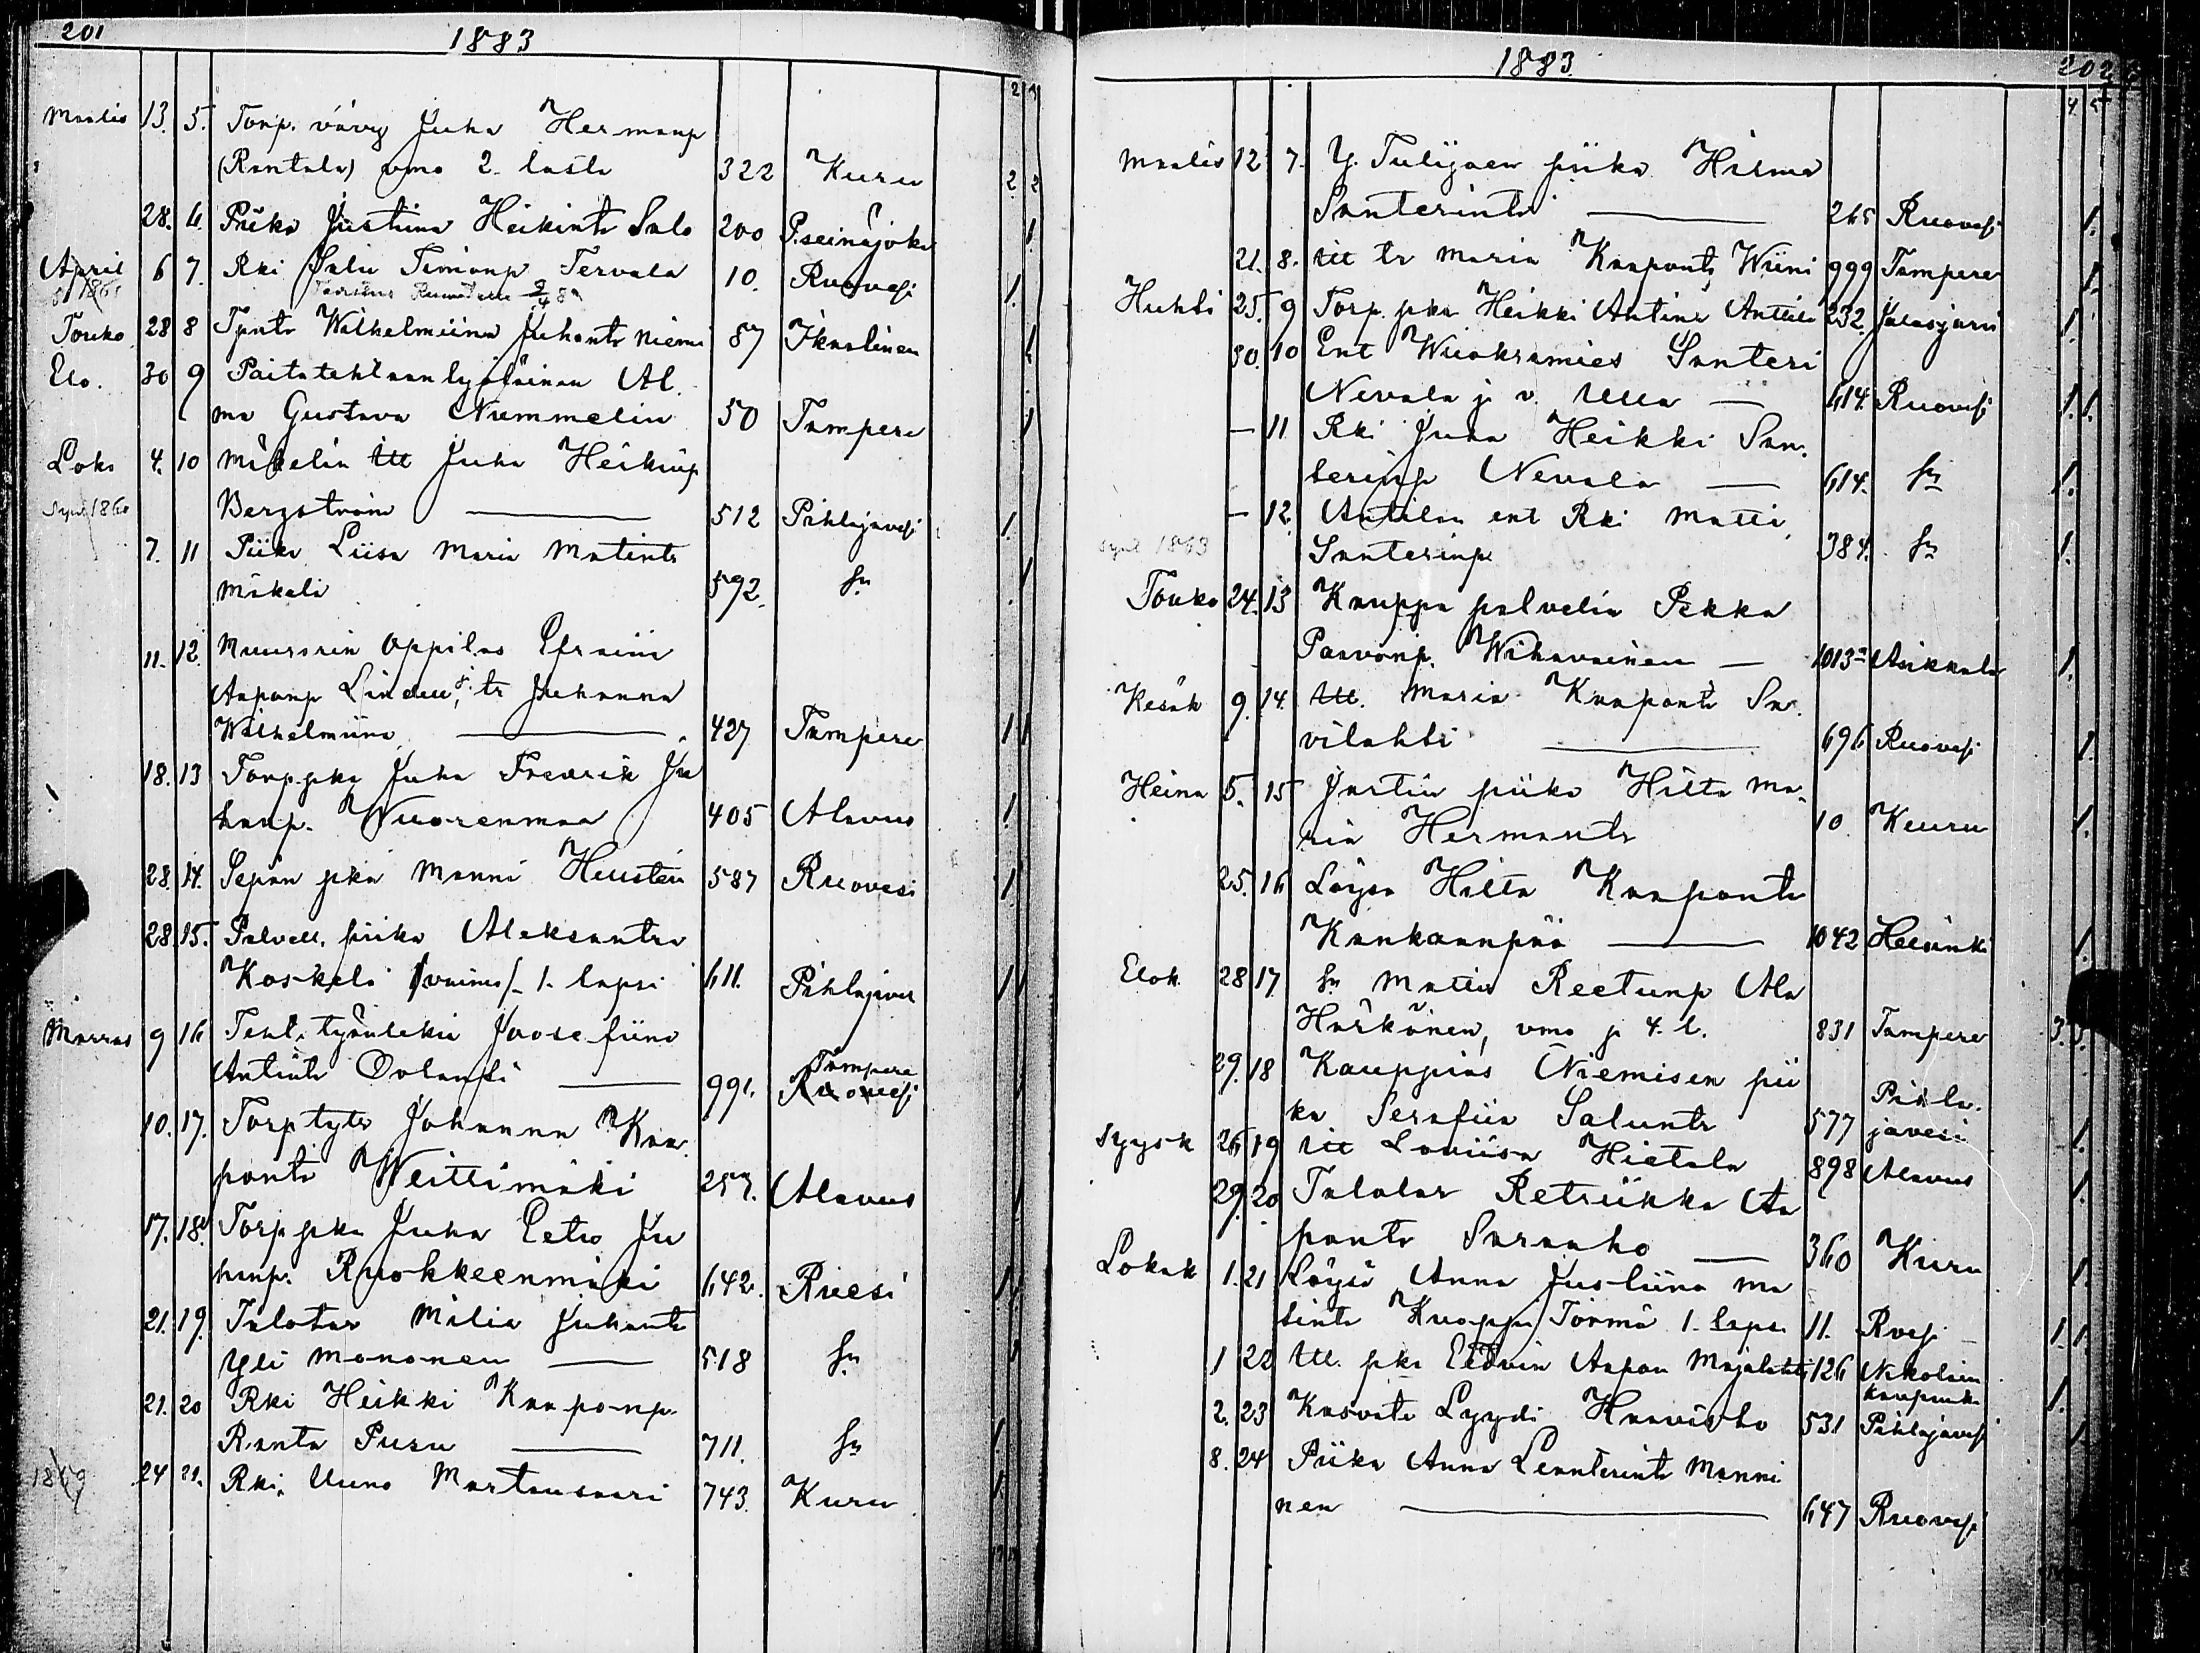 201 1883
2
Maalis 13. 5. Torp. vävy Juha Hermanp
(Rantala) vmo 2. lasta 322 Kuru 2 2
28. 6. Piika Justiina Heikintr Salo 200 P.seinäjoki 1.
April 6 7. Rki Salu Simonp Tervala 10. Ruovesi 1.
Touko 28 8 Tpntr Wilhelmiina Juhontr Niemi 87 Ikaalinen 1.
Elo. 30 9 Paitatehtaan työläinen Al.
ma Gustava Nummelin 50 Tampere 1
Loka 4. 10 Mäkelin itt Juha Heikinp
Synt 1860 Bergström — 512 Pihlajavesi 1.
7. 11 Piika Liisa Maria Matintr
Mäkelä 592. sn 1
11. 12. Muurarin oppilas Efraim
Aaponp Linden, j. tr Johanna
Wilhelmiina — 427 Tampere 1 1
18. 13 Torp.pka Juha Fredrik Ju
hanp. Wuorenmaa 405 Alavus 1.
28. 14. Sepän pka Manni Heusten 587 Ruovesi 1
28. 15. Palvell. piika Aleksantra
Koskela /vaimo/ 1. lapsi 611. Pihlajaves 1 1
Marras 9 16 Teht. työntekiä Joosefiina
Antintr Orlanti — 991. Tampere
Ruovesi
10. 17. Torp tytr Johanna Kaa
pontr Weittimäki 257. Alavus 1
17. 18. Torp pka Juha Eetro Ju
hanp. Ruokkeenmäki 642. Rvesi 1
21. 19. Talotar Milia Juhontr
Yli Mononen — 518 sn 1
21. 20 Rki Heikki Kaaponp
Ranta Pusu — 711. sn 1.
1869 24 21. Rki. Uuno Martansaari 743. Kuru 1.
1883 202
4. 5
Maalis 12 7. Y. Tulijaen piika Hilma
Santerintr — 265 Ruovesi 1.
21. 8. itt tr Maria Kaapontr Wiini 999 Tampere 1.
Huhti 25. 9 Torp. pka Heikki Antinp Anttila 232. Jalasjärvi 1.
30. 10 Ent Wuokramies Santeri
Nevala j. v. Ulla — 614. Ruovesi 1. 1.
— 11 Rki Juha Heikki San.
terinp Nevala — 614. sn 1.
— 12. Anttilan ent Rki Matti
Synt 1863 Santerinp 384. sn 1.
Touko 24. 13 Kauppa palvelia Pekka
Paavonp. Wihavainen — 1013 Asikkala 1.
Kesäk 9. 14. itt. Maria Kaapontr Sa.
vilahti — 696 Ruovesi 1.
Heinä 5. 15 Justin piika Hilta Ma.
ria Hermantr 10 Kuru 1.
25. 16 Löysä Hilta Kaapontr
Kankaanpää — 1042 Helsinki 1.
Elok 28 17. sn Matti Reetunp Ala
Härkönen, vmo j 4. l. 831 Tampere 3. 3.
29. 18 Kauppias Niemisen pii
ka Serafiia Saluntr 577 Pihla.
javesi 1.
Syysk 26 19 itt Loviisa Hietala 898 Alavus 1.
29. 20 Talolar Retriikka Aa
pontr Saraaho — 360 Kuru 1.
Lokak 1. 21 Löysä Anna Justiina Ma
tintr Kuoppa/Törmä 1. lapsi 11. Rvesi 1. 1.
1 22 itt. pka Eedvin Aapon Majalahti 126 Nikolain
kaupunki 1.
2. 23 Kasvatr Lyydi Haavisto 531 Pihlajavesi 1.
8. 24 Piika Anna Leanterintr Manni
nen — 647 Ruovesi